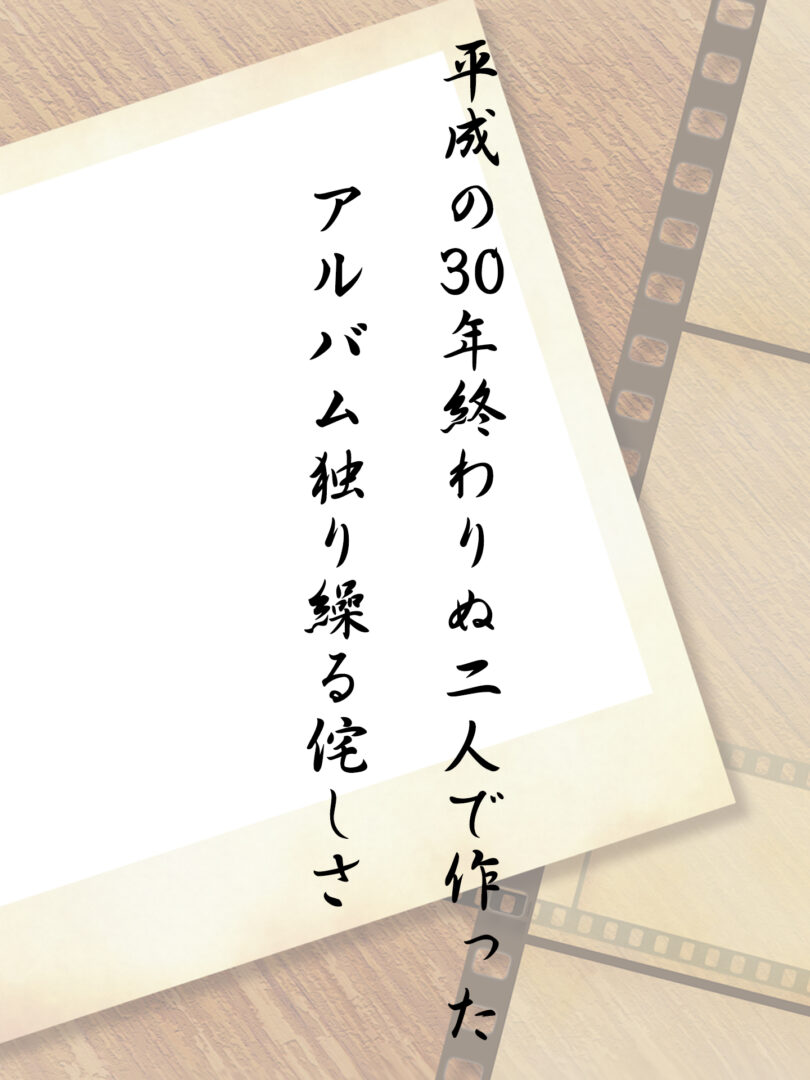 平成の30年終わりぬ二人で作った
アルバム独り繰る侘しさ